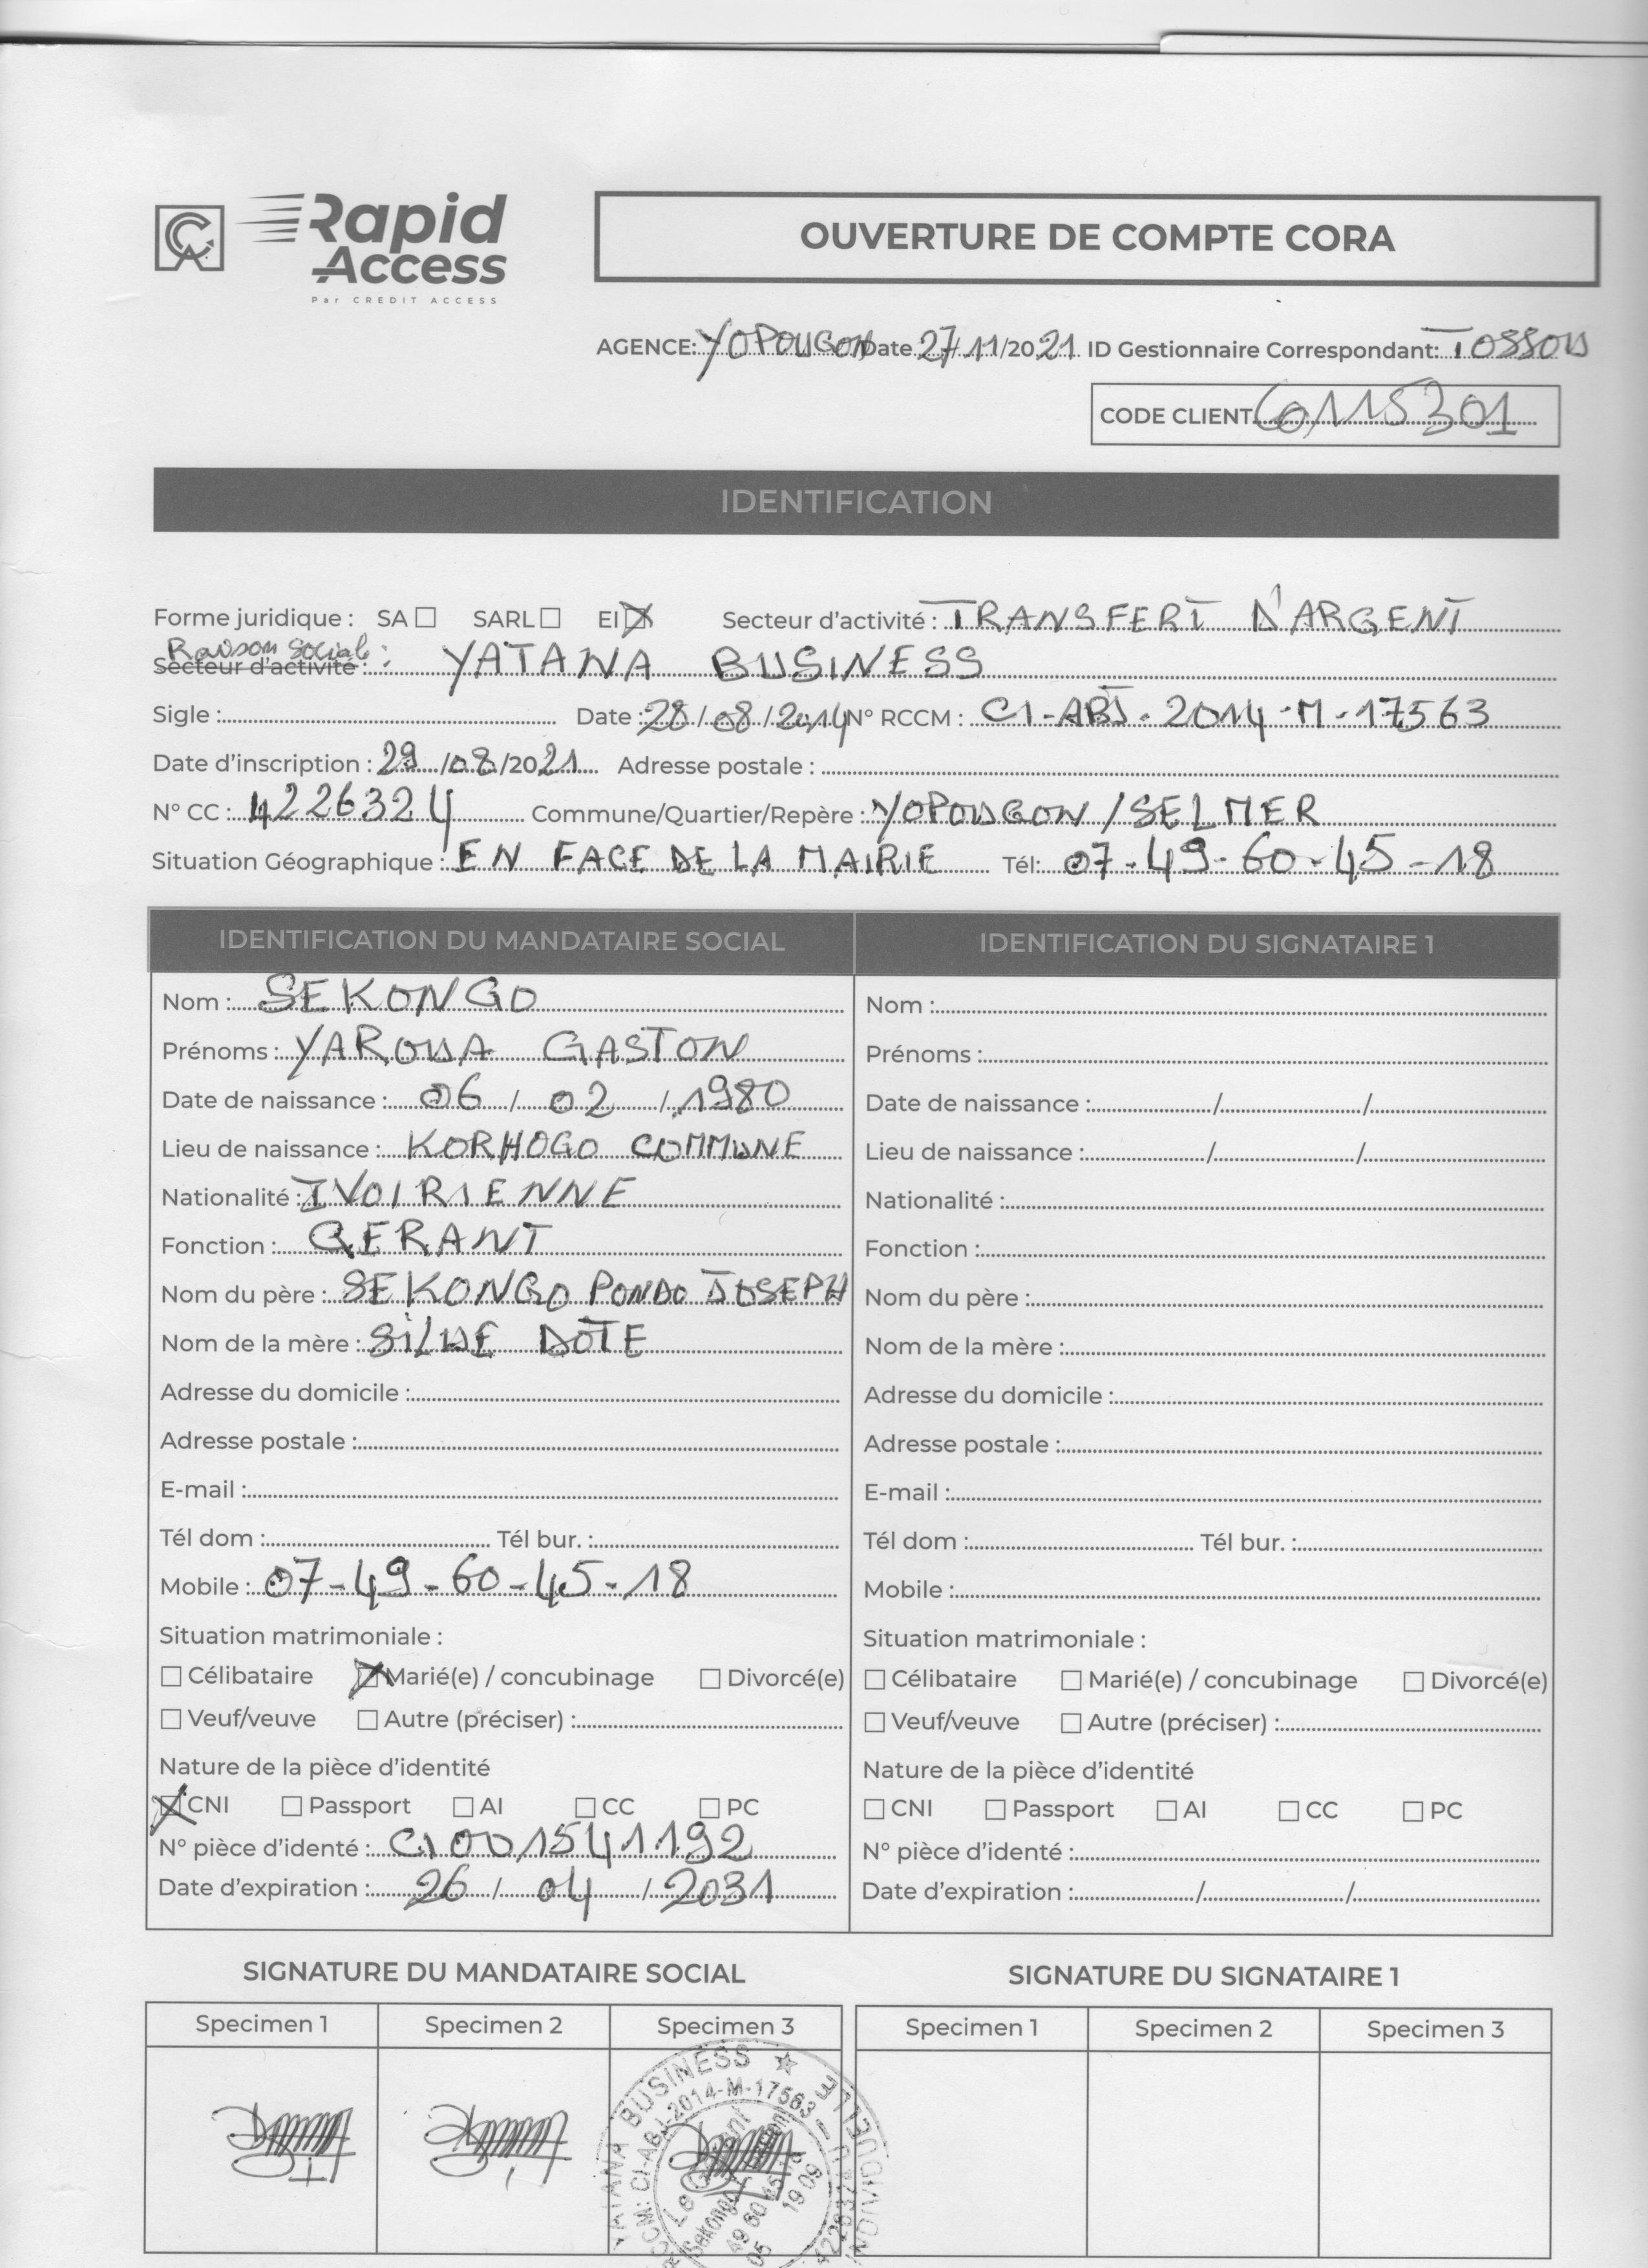 Rapid
Access
Par CREDIT ACCESS
OUVERTURE DE COMPTE CORA
AGENCE: YOPOUGON Date 27/11/2021 ID Gestionnaire Correspondant: TOSSOU
CODE CLIENT 60115301
IDENTIFICATION
Forme juridique : SA SARL EI Secteur d'activité : TRANSFERT D'ARGENT
Raison Social :
Secteur d'activité : YATANA BUSINESS
Sigle : Date : 28/08/2014 N° RCCM : CI-ABJ-2014-M-17563
Date d'inscription : 29/08/2021 Adresse postale :
N° CC : 4226324 Commune/Quartier/Repère : YOPOUGON/SELMER
Situation Géographique : EN FACE DE LA MAIRIE Tél: 07-49-60-45-18
IDENTIFICATION DU MANDATAIRE SOCIAL
Nom : SEKONGO
Prénoms : YAROUA GASTON
Date de naissance : 06 / 02 / 1980
Lieu de naissance : KORHOGO COMMUNE
Nationalité : IVOIRIENNE
Fonction : GERANT
Nom du père : SEKONGO PONDO JOSEPH
Nom de la mère : SILUE DOTE
Adresse du domicile :
Adresse postale :
E-mail :
Tél dom : Tél bur. :
Mobile : 07-49-60-45-18
Situation matrimoniale :
Célibataire Marié(e) / concubinage Divorcé(e)
Veuf/veuve Autre (préciser) :
Nature de la pièce d'identité
CNI Passport AI CC PC
N° pièce d'identé : CI001541192
Date d'expiration : 26 / 04 / 2031
IDENTIFICATION DU SIGNATAIRE 1
Nom :
Prénoms :
Date de naissance : / /
Lieu de naissance : / /
Nationalité :
Fonction :
Nom du père :
Nom de la mère :
Adresse du domicile :
Adresse postale :
E-mail :
Tél dom : Tél bur. :
Mobile :
Situation matrimoniale :
Célibataire Marié(e) / concubinage Divorcé(e)
Veuf/veuve Autre (préciser) :
Nature de la pièce d'identité
CNI Passport AI CC PC
N° pièce d'identé :
Date d'expiration : / /
SIGNATURE DU MANDATAIRE SOCIAL
Specimen 1 Specimen 2 Specimen 3
YATANA BUSINESS
RCCM: CI-ABJ-2014-M-17563
SIGNATURE DU SIGNATAIRE 1
Specimen 1 Specimen 2 Specimen 3